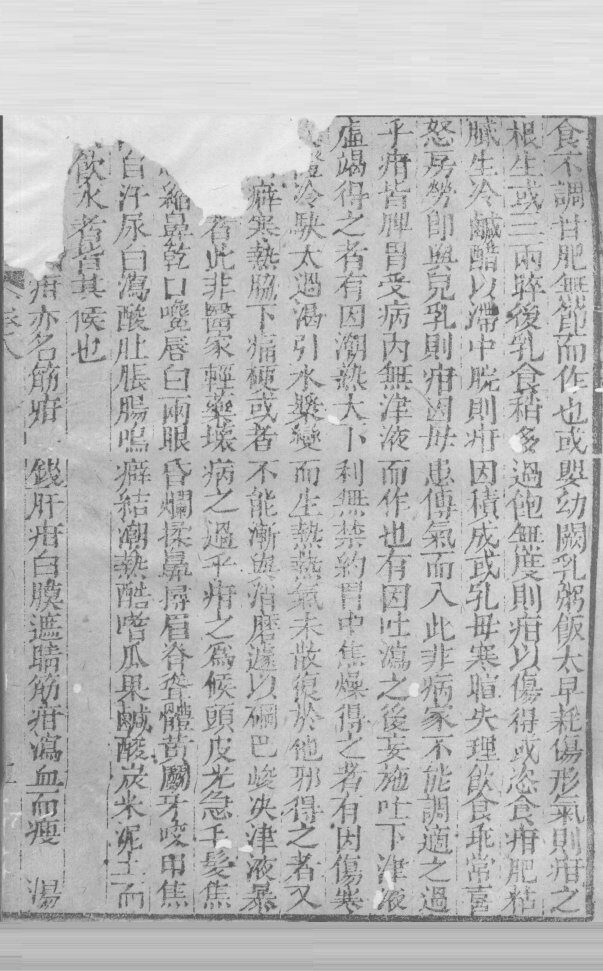 食不調甘肥無節而作也或嬰幼闕乳粥飯太早耗傷形氣則疳之
根生或三兩晬後乳食稍多過飽無度則疳以傷得或恣食甘肥粘
膩生冷鹹醋以滯中脘則疳因積成或乳母寒暄失理飲食乖常喜
怒房勞即與兒乳則疳因母患傳氣而入此非病家不能調適之過
乎疳皆脾胃受病內無津液而作也有因吐瀉之後妄施吐下津液
虛竭得之者有因潮熱大下利無禁約胃中焦燥得之者有因傷寒
冷駃太過渴引水漿變而生熱熱氣未散復於他邪得之者又
癖寒熱脇下痛硬或者不能漸與消磨遽以硇巴峻決津液暴
者此非醫家輕藥壞病之過乎疳之為候頭皮光急毛髮焦
縮鼻乾口嚵唇白兩眼昏爛揉鼻撏眉脊聳體黃鬭牙咬甲焦
自汗尿白瀉酸肚脹腸鳴癖結潮熱酷嗜瓜果鹹酸炭米泥土而
飲水者皆其候也
疳亦名筋疳 錢肝疳白膜遮睛筋疳瀉血而瘦 湯